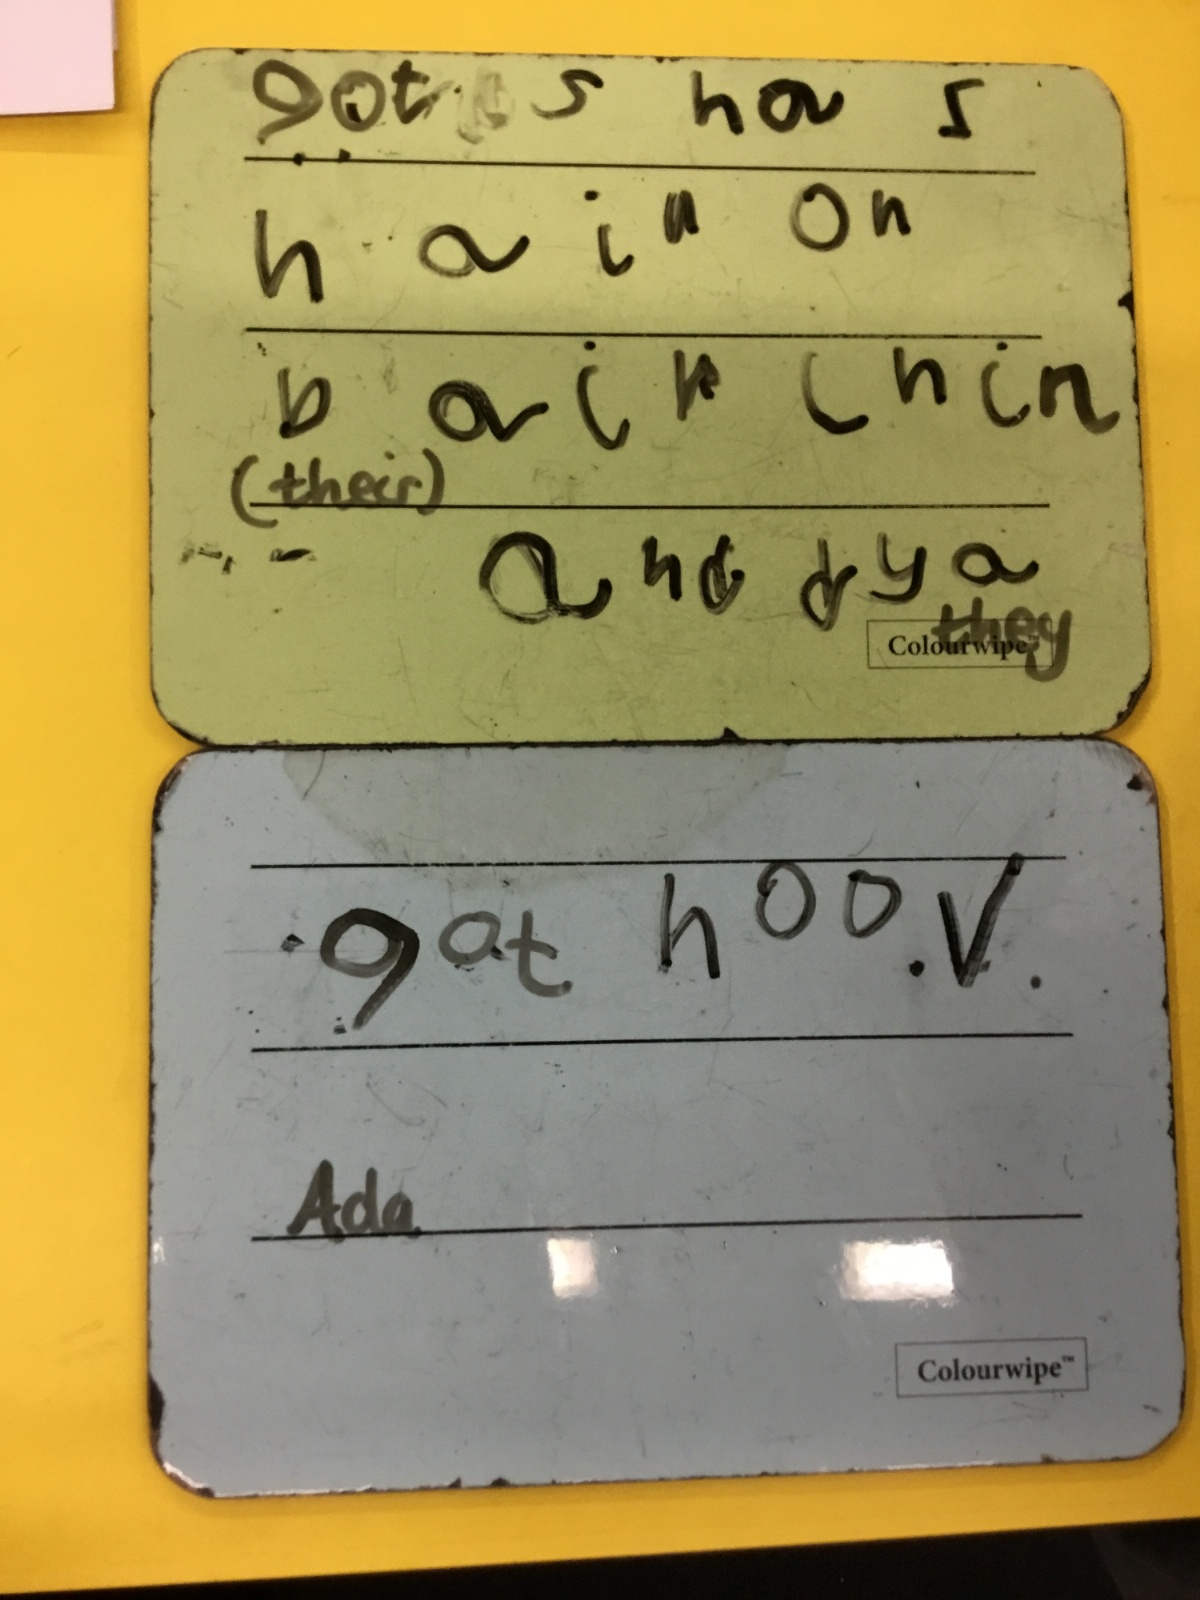 gots has
hair on
bair chin
(their)
and dya
they
Colourwipe™
gat hoov.
Ada
Colourwipe™